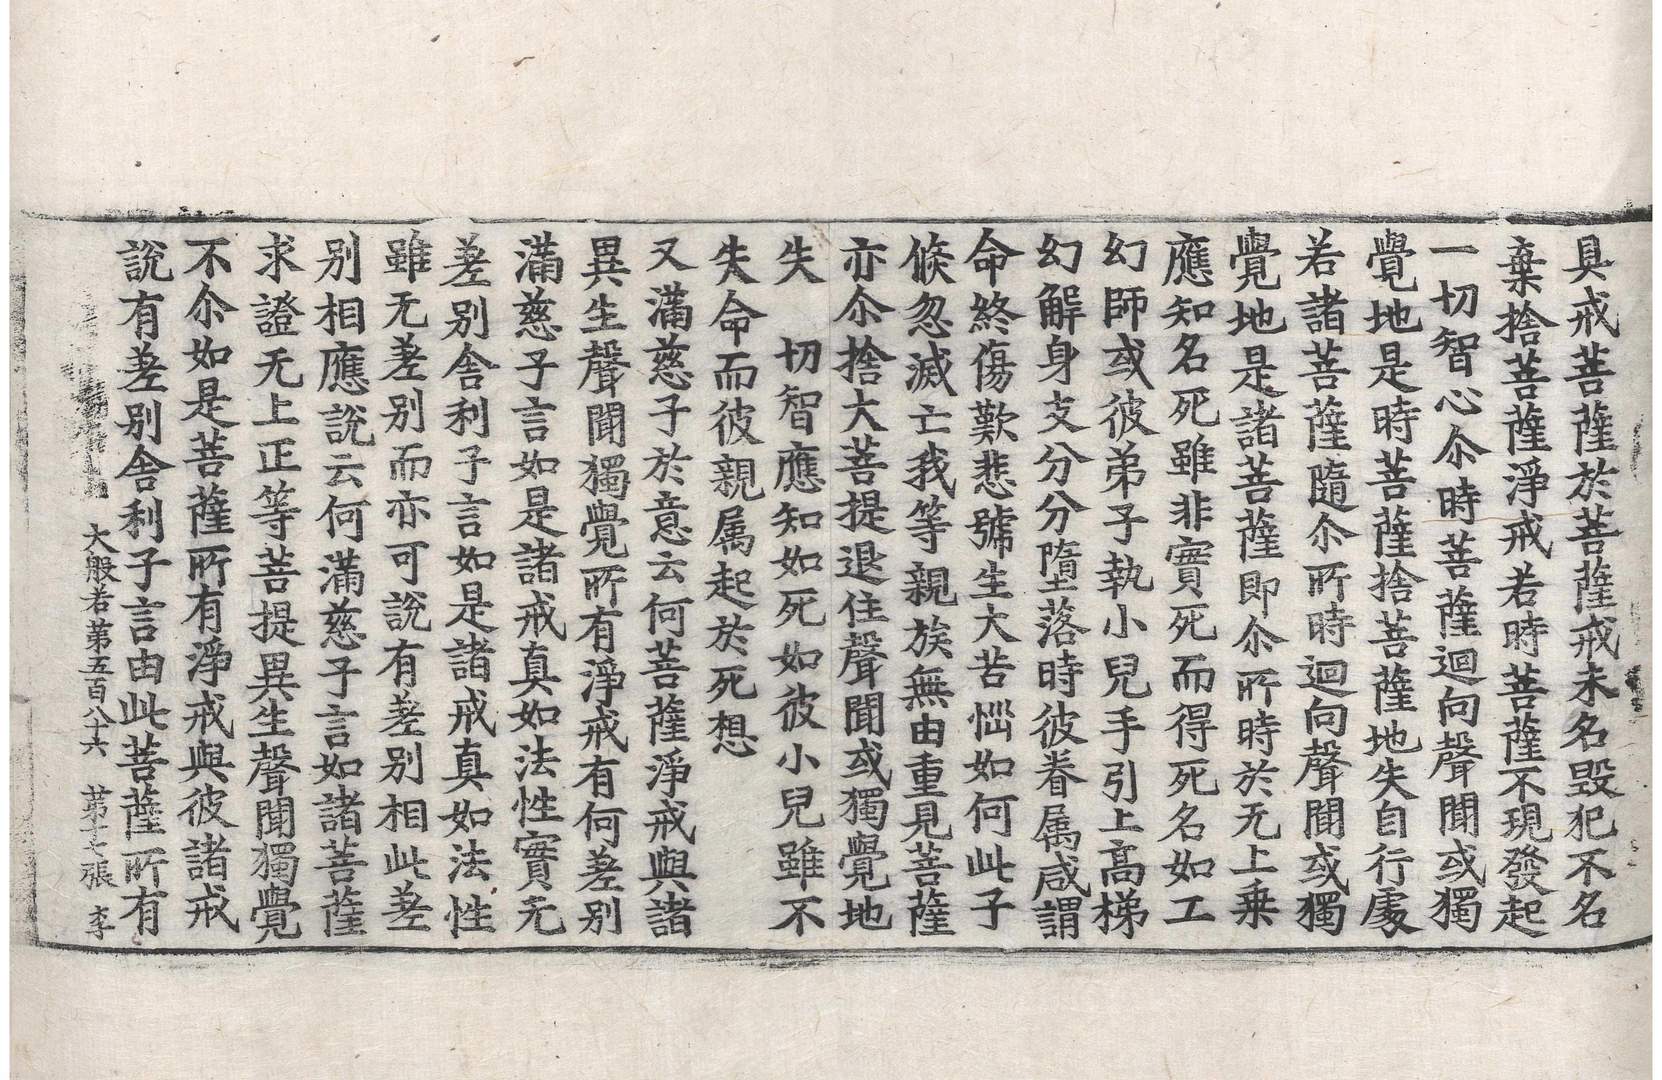 具戒菩薩於菩薩戒未名毀犯不名
棄捨菩薩淨戒若時菩薩不現發起
一切智心尒時菩薩迴向聲聞或獨
覺地是時菩薩捨菩薩地失自行處
若諸菩薩隨尒所時迴向聲聞或獨
覺地是諸菩薩即尒所時於无上乗
應知名死雖非實死而得死名如工
幻師或彼弟子執小兒手引上高梯
幻解身支分分墮落時彼眷属咸謂
命終傷歎悲號生大苦惱如何此子
倏忽滅亡我等親族無由重見菩薩
亦尒捨大菩提退住聲聞或獨覺地
失 切智應知如死如彼小兒雖不
失命而彼親属起於死想
又滿慈子於意云何菩薩淨戒與諸
異生聲聞獨覺所有淨戒有何差别
滿慈子言如是諸戒真如法性實无
差别舍利子言如是諸戒真如法性
雖无差别而亦可說有差别相此差
别相應說云何滿慈子言如諸菩薩
求證无上正等菩提異生聲聞獨覺
不尒如是菩薩所有淨戒與彼諸戒
說有差别舍利子言由此菩薩所有
大般若第五百八十六 第十七張 李